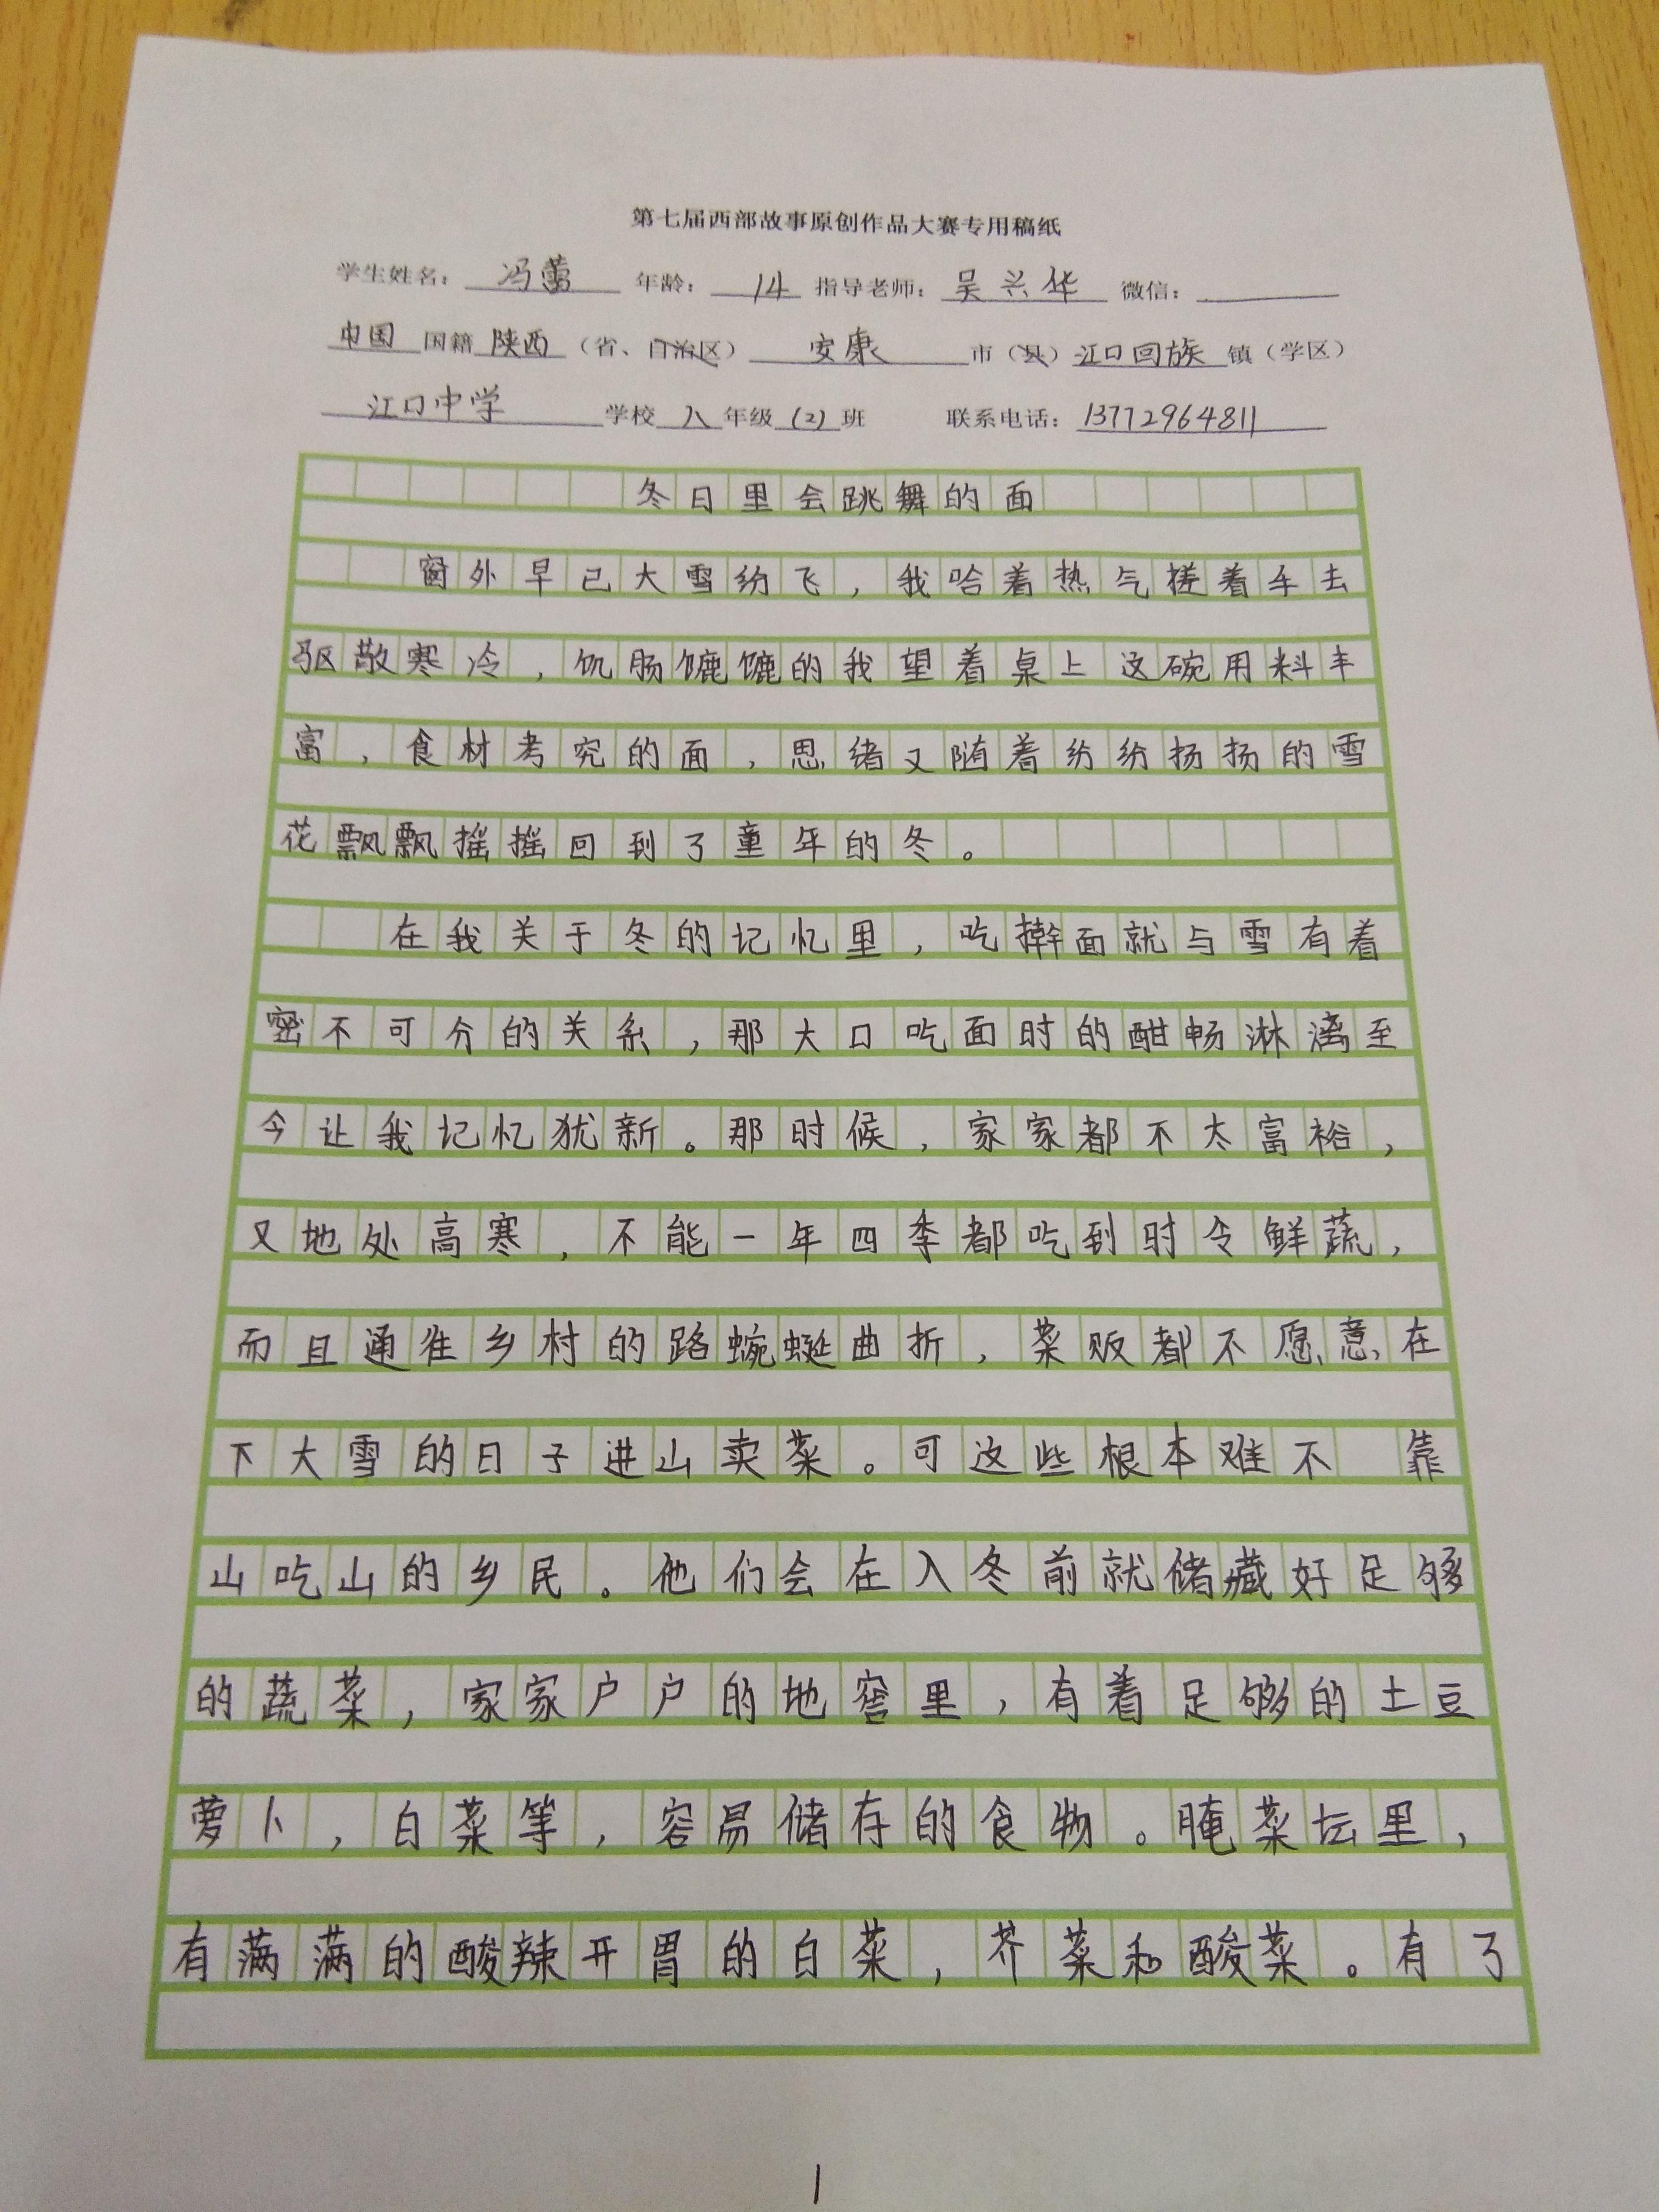 第七届西部故事原创作品大赛专用稿纸
学生姓名：冯蕾 年龄：14 指导老师：吴兴华 微信：
中国国籍陕西（省、自治区）安康市（县）江口回族镇（学区）
江口中学学校八年级(2)班 联系电话：13772964811
冬日里会跳舞的面
窗外早已大雪纷飞，我哈着热气搓着手去
驱散寒冷，饥肠辘辘的我望着桌上这碗用料丰
富，食材考究的面，思绪又随着纷纷扬扬的雪
花飘飘摇摇回到了童年的冬。
在我关于冬的记忆里，吃擀面就与雪有着
密不可分的关系，那大口吃面时的酣畅淋漓至
今让我记忆犹新。那时候，家家都不太富裕，
又地处高寒，不能一年四季都吃到时令鲜蔬，
而且通往乡村的路蜿蜒曲折，菜贩都不愿意在
下大雪的日子进山卖菜。可这些根本难不 靠
山吃山的乡民。他们会在入冬前就储藏好足够
的蔬菜，家家户户的地窖里，有着足够的土豆
萝卜，白菜等，容易储存的食物。腌菜坛里，
有满满的酸辣开胃的白菜，芥菜和酸菜。有了
1